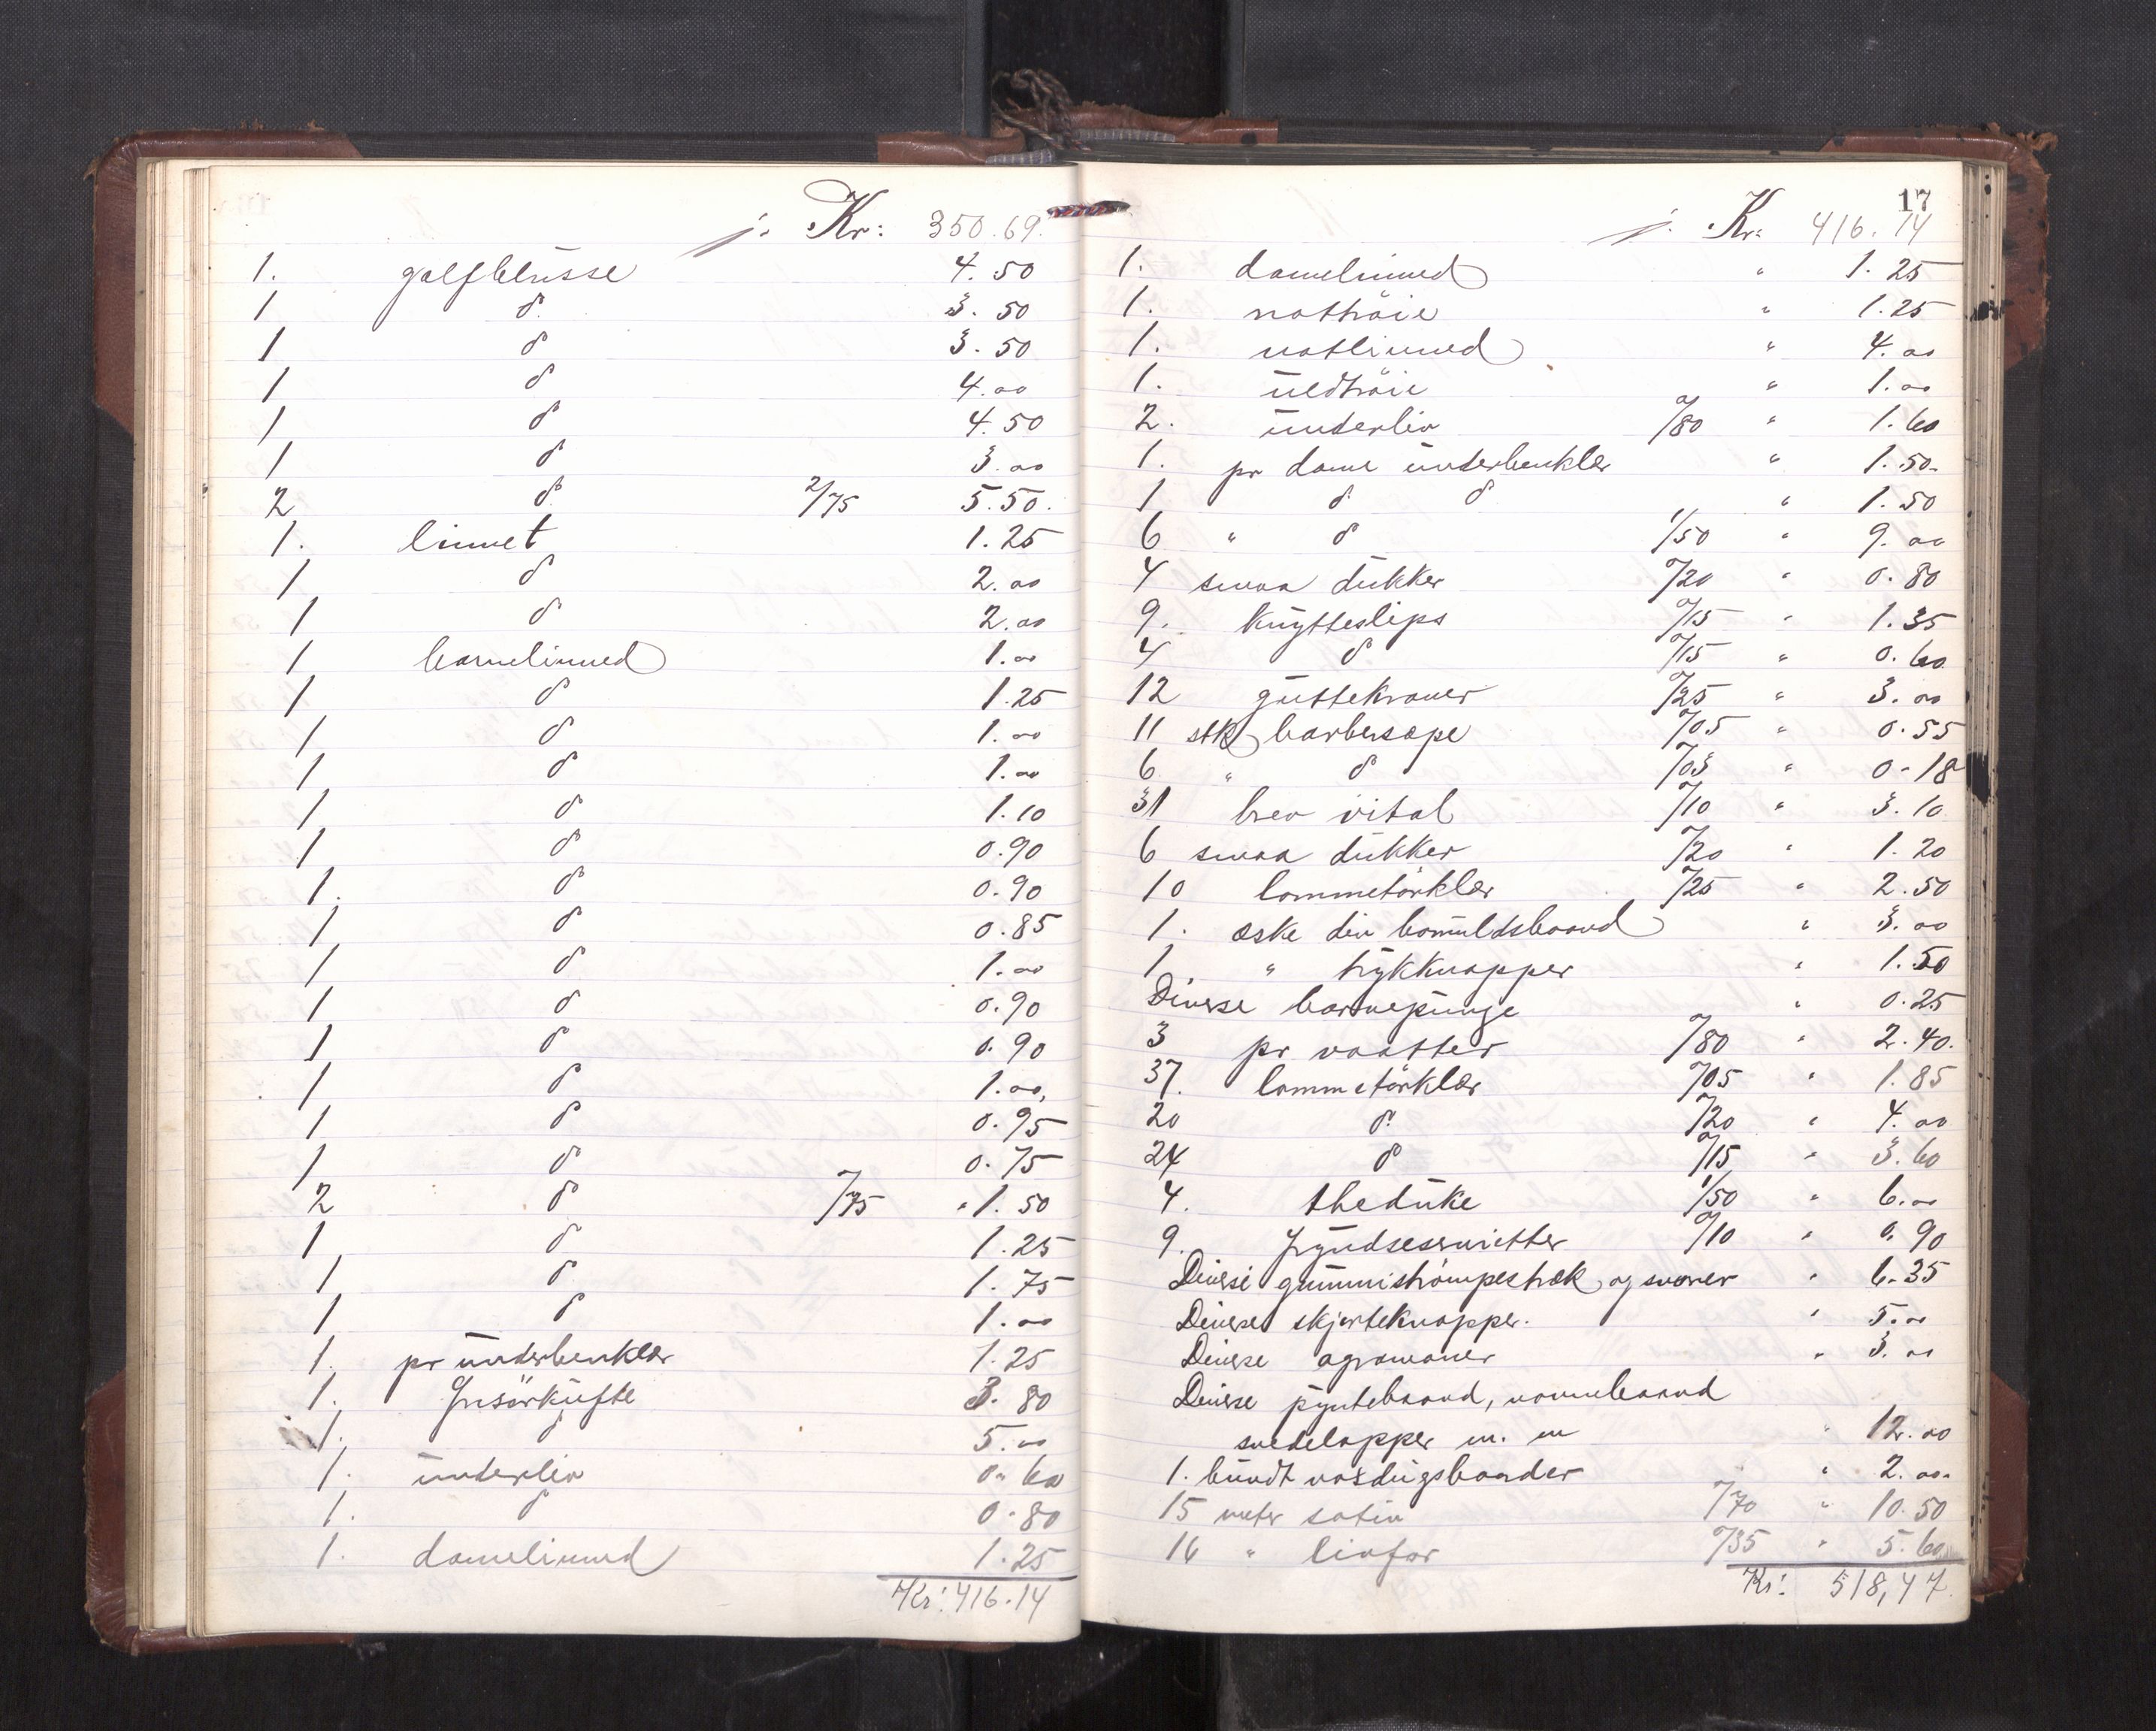 Kr: 350.69.
1. golfblusse 4.50
1 do. 3.50
1 do 3.50
1 do 4.00
1 do 4.50
1 do 3.00
2 do 2/75 5.50.
1. linnet 1.25
1 do 2.00
1 do 2.00
1 barnelinned 1.00
1 do 1.25
1 do 1.00
1 do 1.00
1 do 1.10
1 do 0.90
1. do 0.90
1 do 0.85
1 do 1.00
1 do 0.90
1 do 0.90
1 do 1.00,
1 do 0.95
1 do 0.75
2 do 0/75 " 1.50
1 do 1.25
1 do 1.75
1 do 1.00
1. pr underbenklær 1.25
1. Frisörkufte 3.80
1. do 5.00
1. underliv 0.60
1. do 0.80
1. damelinned 1.25
Kr: 416.14
17
Kr: 416.14
1. damelinned " 1.25
1. nattröie " 1.25
1. natlinned " 4.00
1. uldtröie " 1.00
2. underliv 0/80 " 1.60
1. pr dame underbenklær " 1.50
1 do do " 1.50
6 " do 1/50 " 9.00
4 smaa dukker 0/20 " 0.80
9. Knytteslips 0/15 " 1.35
4 do 0/15 " 0.60
12 guttekraver 0/25 " 3.00
11 stk barbersæpe 0/05 " 0.55
6 " do 0/03 " 0.18
31 brev vital 0/10 " 3.10
6 smaa dukker 0/20 " 1.20
10 lommetörklær 0/25 " 2.50
1. æske div bomuldsbaand " 3.00
1 " trykknapper " 1.50
Diverse barnepunge " 0.25
3 pr vaatter 0/80 " 2.40.
37. lommetörklær 0/05 " 1.85
20 do. 0/20 " 4.00
24 do 0/15 " 3.60
4. theduke 1/50 " 6.00
9. fryndseservietter 0/10 " 0.90
Diverse gummiströmpestræk og " 6.35
Diverse skjorteknapper. " 5.00
Diverse agramaner " 3.00
Diverse pyntebaand, navnebaand
svedelapper m. m " 12.00
1. bundt vaskbaander " 2.00.
15 meter satin 0/70 " 10.50
16 " livfor 0/35 " 5.60
Kr: 518,47